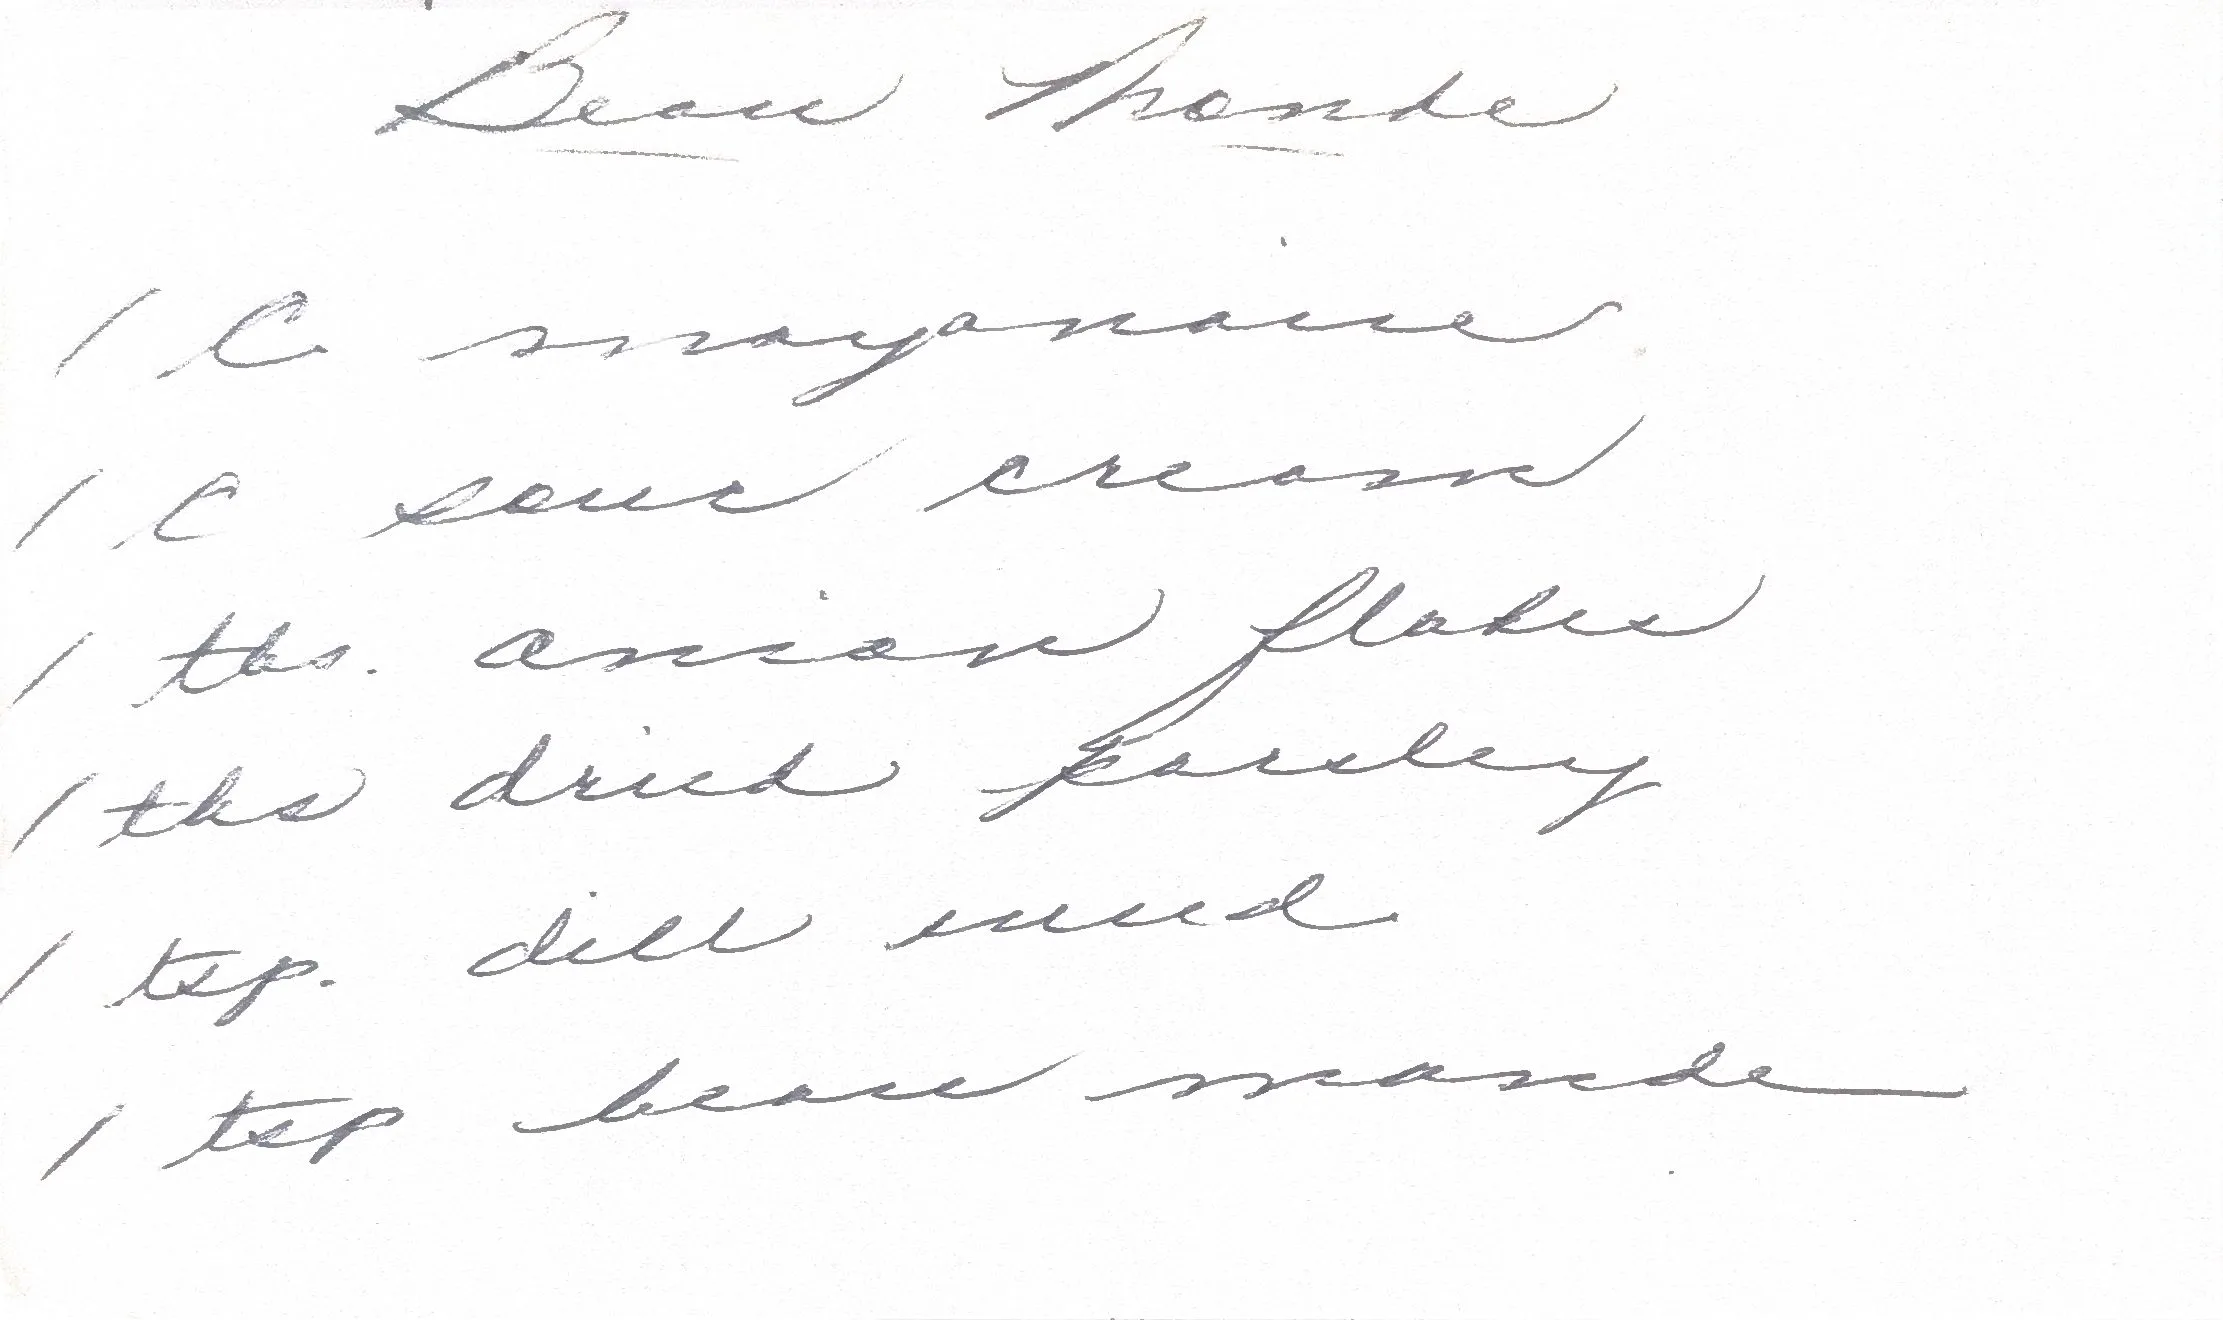 Beau Monde
1 C. mayonaise
1 C sour cream
1 tbs. onion flakes
1 tbs dried parsley
1 tsp. dill weed
1 tsp beau monde